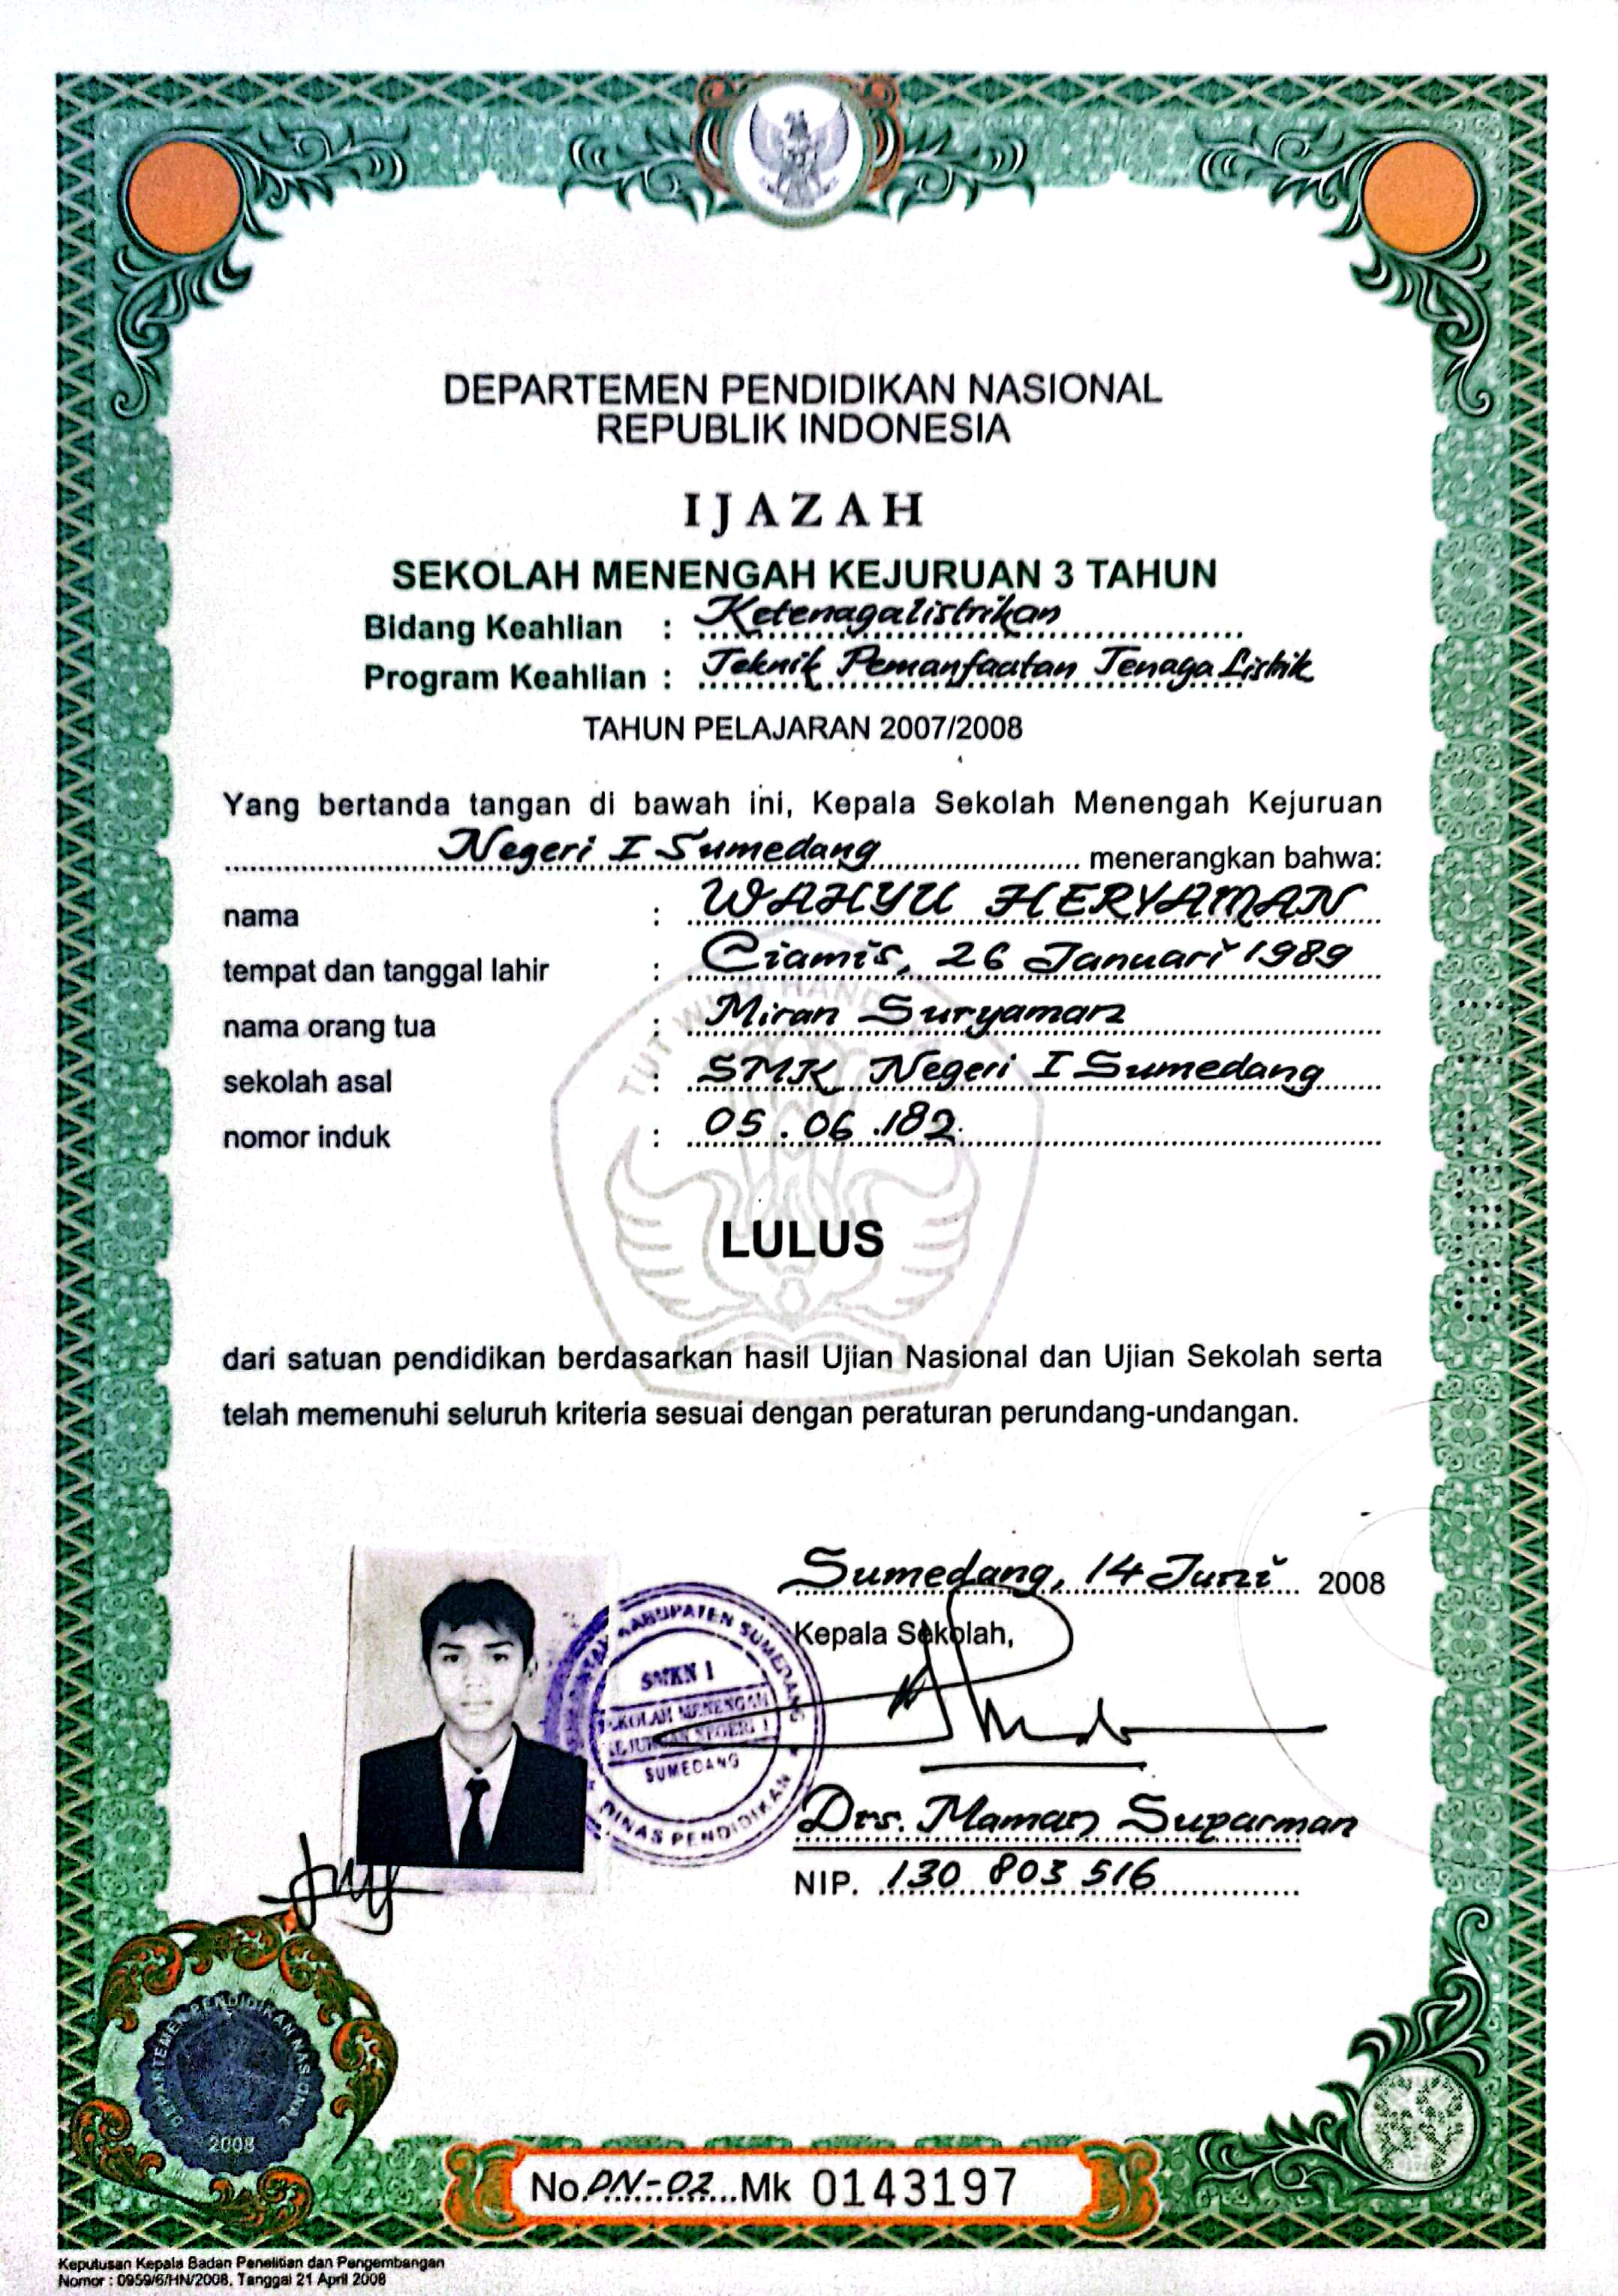 DEPARTEMEN PENDIDIKAN NASIONAL
REPUBLIK INDONESIA
IJAZAH
SEKOLAH MENENGAH KEJURUAN 3 TAHUN
Bidang Keahlian : Ketenagalistrikan
Program Keahlian : Teknik Pemanfaatan Tenaga Listrik
TAHUN PELAJARAN 2007/2008
Yang bertanda tangan di bawah ini, Kepala Sekolah Menengah Kejuruan
Negeri I Sumedang menerangkan bahwa:
nama : WAHYU HERYAMAN
tempat dan tanggal lahir : Ciamis, 26 Januari 1989
nama orang tua : Miran Suryaman
sekolah asal : SMK Negeri I Sumedang
nomor induk : 05.06.182
TUT WURI HANDAYANI
LULUS
dari satuan pendidikan berdasarkan hasil Ujian Nasional dan Ujian Sekolah serta
telah memenuhi seluruh kriteria sesuai dengan peraturan perundang-undangan.
Sumedang, 14 Juni 2008
Kepala Sekolah,
KABUPATEN SUMEDANG
SMKN 1
SEKOLAH MENENGAH
KEJURUAN NEGERI 1
SUMEDANG
DINAS PENDIDIKAN
Drs. Maman Suparman
NIP. 130 803 516
DEPARTEMEN PENDIDIKAN NASIONAL
2008
No. DN-02 Mk 0143197
Keputusan Kepala Badan Penelitian dan Pengembangan
Nomor : 0959/6/HN/2008, Tanggal 21 April 2008